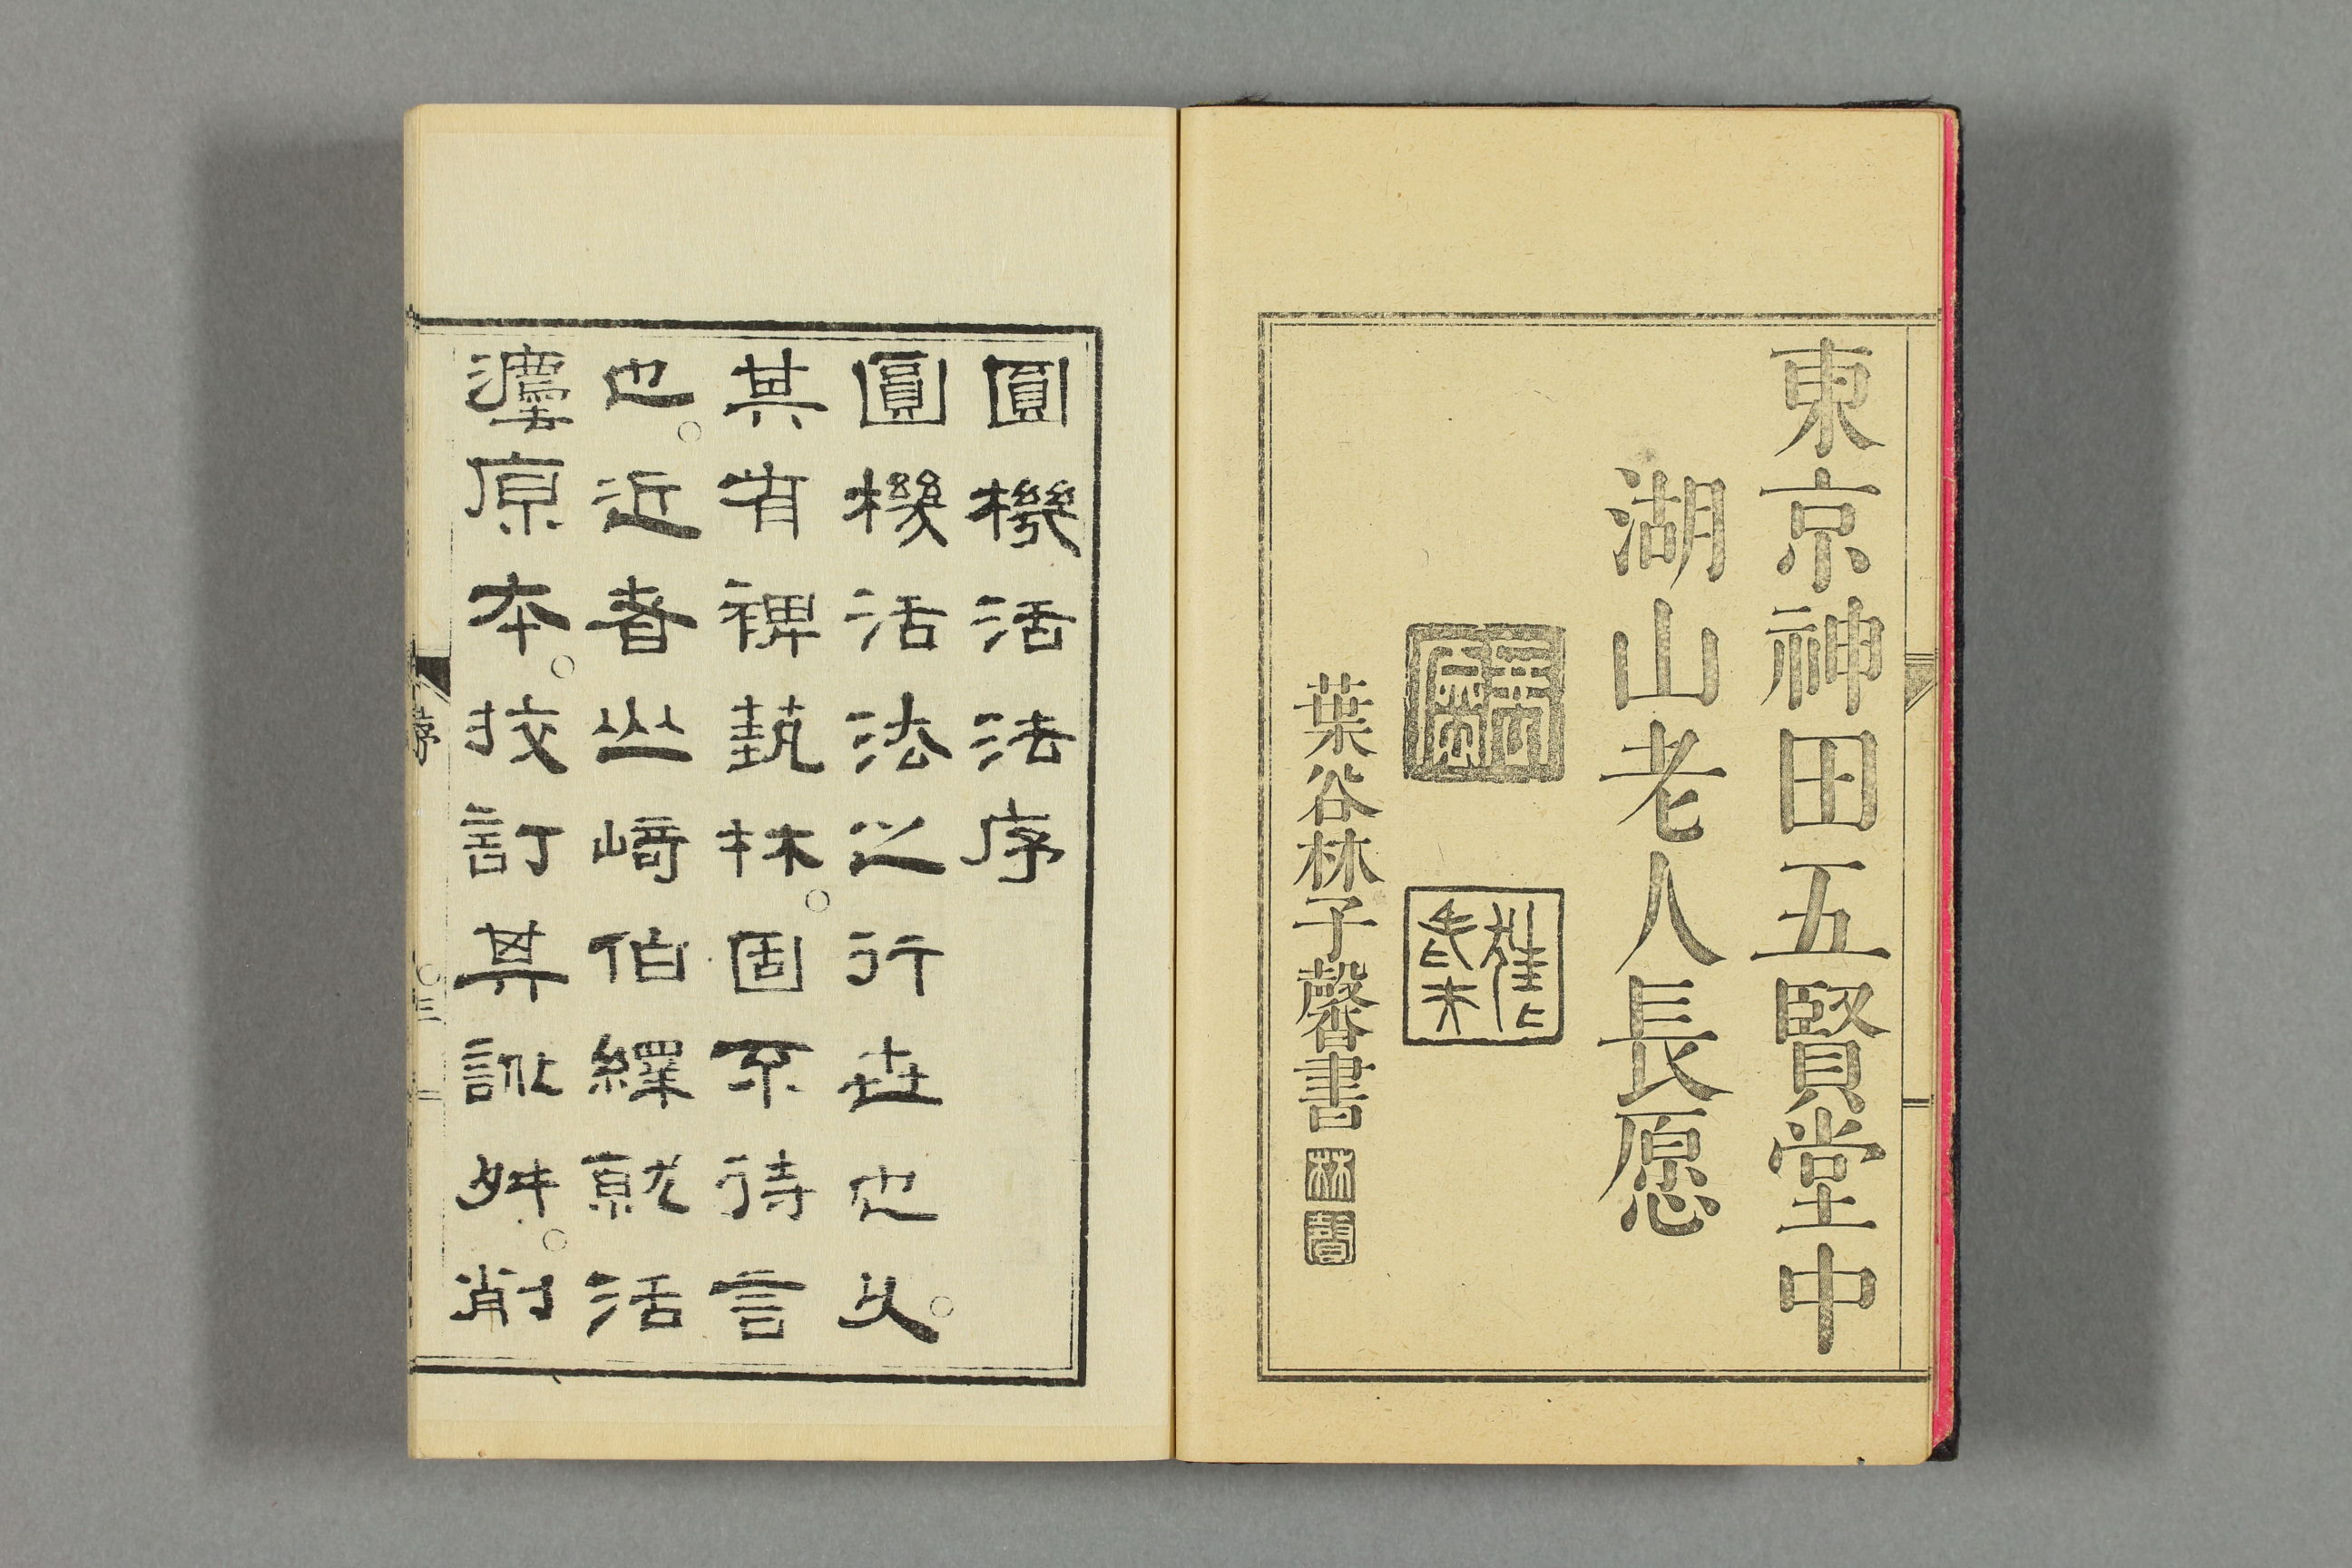 東京神田五賢堂中
湖山老人長愿
葉谷林子馨書
圓機活法序
圓機活法之行世也久。
其有裨埶林。固不待言
也。近者山崎伯繹就活
灋原本。挍訂其訛舛。削
序